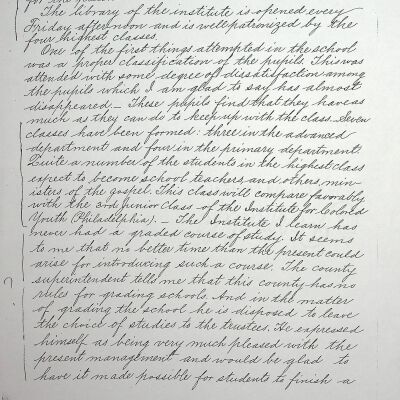 The library of the institute is opened every
Friday afternoon and is well patronized by the
four highest classes.
One of the first things attempted in the school
was a proper classification of the pupils. This was
attended with some degree of dissatisfaction among
the pupils which I am glad to say has almost
disappeared — These pupils find that they have as
much as they can do to keep up with the class. Seven
classes have been formed: three in the advanced
department and four in the primary department.
Quite a number of the students in the highest class
expect to become school teachers, and others, min-
isters of the gospel. This class will compare favorably
with the 3rd junior class of the Institute for Colored
Youth (Philadelphia). — The Institute I learn has
never had a graded course of study. It seems
to me that no better time than the present could
arise for introducing such a course. The county
superintendent tells me that this county has no
rules for grading schools. And in the matter
of grading the school he is disposed to leave
the choice of studies to the trustees. He expressed
himself as being very much pleased with the
present management and would be glad to
have it made possible for students to finish a